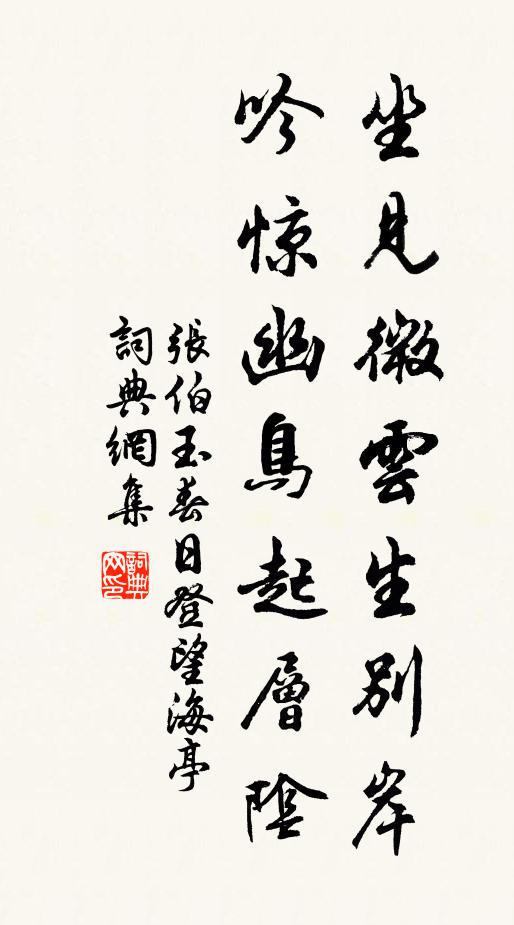 坐見微雲生別岸
吟惊幽鳥起層陰
張伯玉春日登望海亭
詞典網集
詞典網印